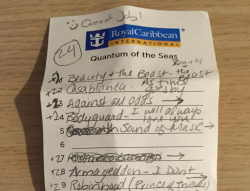 Good Job!
24
RoyalCaribbean
INTERNATIONAL
Quantum of the Seas
Beauty + the Beast - the Beast
+2 2 Casablanca - As time goes by
+2 3 Against all odds →
+2 4 Bodyguard - I will always love you
5 Sound of Music →
6
+2 7
+2 8 Armageddon - I Don't →
+2 9 Robinhood (Prince of Thieves)